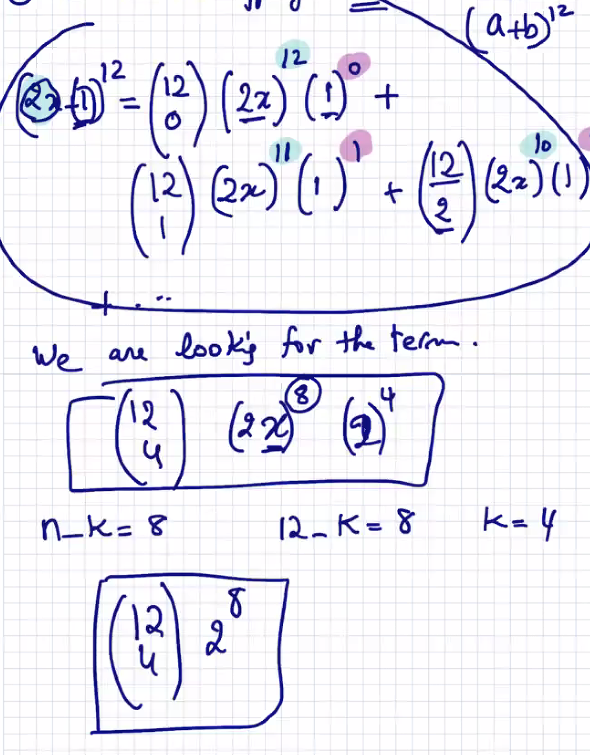 (a+b)^12
(2x+1)^12 = (12 0) (2x)^12 (1)^0 +
(12 1) (2x)^11 (1)^1 + (12 2) (2x)^10 (1)
+ ...
We are look'g for the term.
(12 4) (2x)^8 (1)^4
n-k = 8 12-k = 8 k = 4
(12 4) 2^8